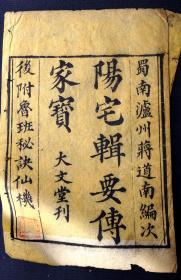 蜀南瀘州蔣道南編次
陽宅輯要傳
家寶
大文堂刊
後附魯班秘訣仙機